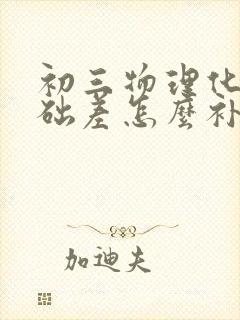 初三物理化
础差怎麼补
加迪夫